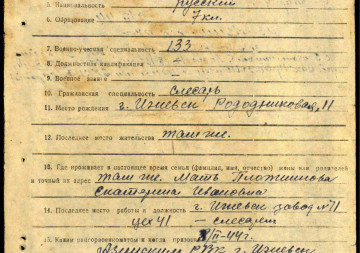 5. Национальность русский
6. Образование 7 кл.
7. Военно-учетная специальность 133
8. Должностная квалификация —
9. Военное звание —
10. Гражданская специальность слесарь
11. Место рождения г. Ижевск Рододниковая, 11
12. Последнее место жительства там же.
13. Где проживает в настоящее время семья (фамилия, имя, отчество) жены или родителей
и точный их адрес там же. Мать
Екатерина Ивановна
14. Последнее место работы и должность г. Ижевск завод № 11
цех 41 — слесарь
15. Каким райгорвоенкоматом и когда призван III-44 г.
РВК г. Ижевск